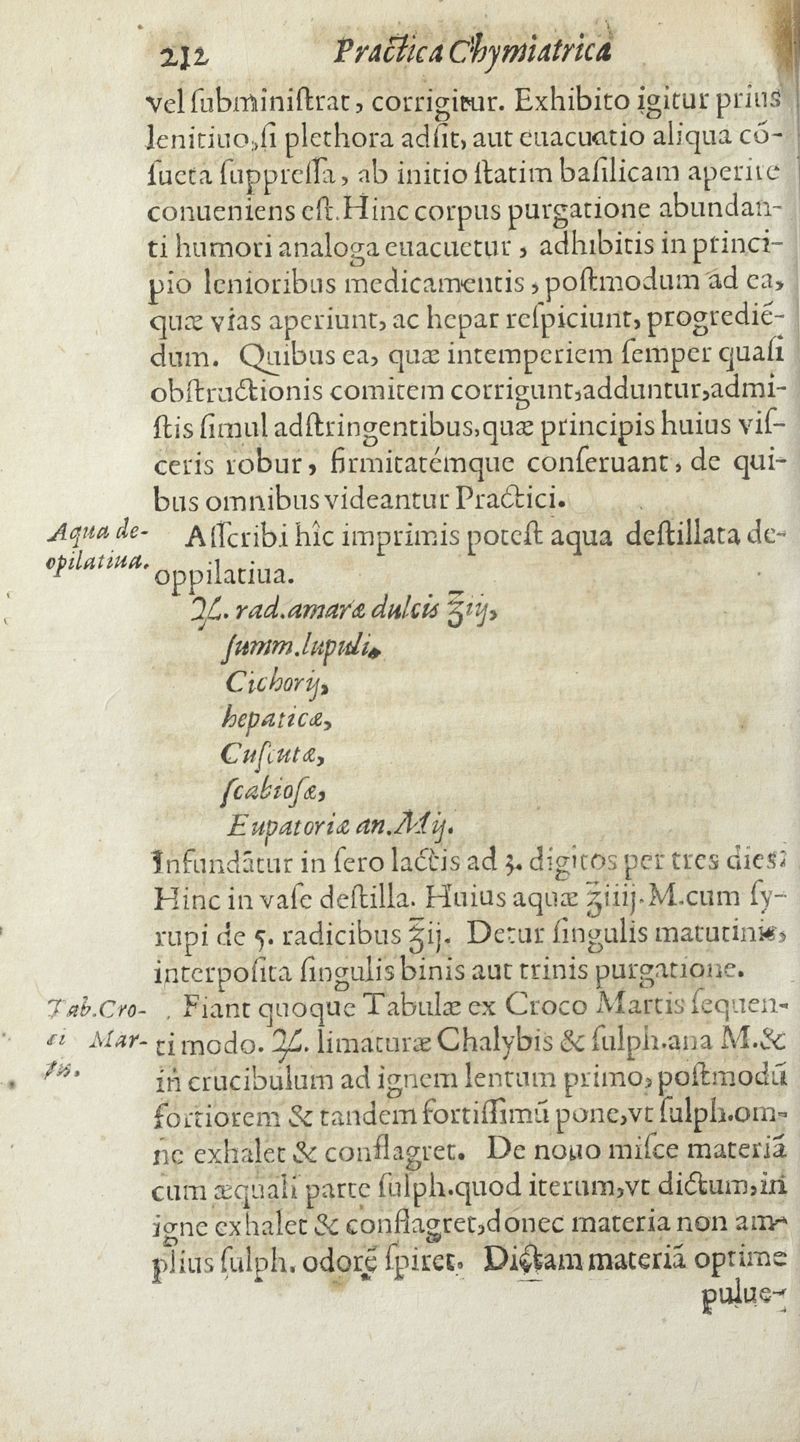 232 Practica Chymiatrica
vel ſubminiſtrat, corrigitur. Exhibito igitur prius
lenitiuo, ſi plethora adſit, aut euacuatio aliqua cō-
ſueta ſuppreſſa, ab initio ſtatim baſilicam aperire
conueniens eſt. Hinc corpus purgatione abundan-
ti humori analoga euacuetur, adhibitis in princi-
pio lenioribus medicamentis, poſtmodum ad ea,
quæ vias aperiunt, ac hepar reſpiciunt, progrediē-
dum. Quibus ea, quæ intemperiem ſemper quaſi
obſtructionis comitem corrigunt, adduntur, admi-
ſtis ſimul adſtringentibus, quæ principis huius viſ-
ceris robur, firmitatémque conſeruant, de qui-
bus omnibus videantur Practici.
Aqua de-
opilatiua.
Aſſcribi hîc imprimis poteſt aqua deſtillata de-
oppilatiua.
♃. rad. amaræ dulcis ℥iij,
ſumm. lupuli,
Cichorij,
hepaticæ,
Cuſcutæ,
ſcabioſæ,
Eupatoriæ an. Mij.
Infundātur in ſero lactis ad 3. digitos per tres dies:
Hinc in vaſe deſtilla. Huius aquæ ℥iiij. M. cum ſy-
rupi de 5. radicibus ℥ij. Detur ſingulis matutinis,
interpoſita ſingulis binis aut trinis purgatione.
Tab. Cro-
ci Mar-
tis.
Fiant quoque Tabulæ ex Croco Martis ſequen-
ti modo. ♃. limaturæ Chalybis & ſulph. ana M. &
in crucibulum ad ignem lentum primo, poſtmodū
fortiorem & tandem fortiſſimū pone, vt ſulph. om-
ne exhalet & conflagret. De nouo miſce materiā
cum æquali parte ſulph. quod iterum, vt dictum, in
igne exhalet & conflagret, donec materia non am-
plius ſulph. odorē ſpiret. Dictam materiā optime
pulue-